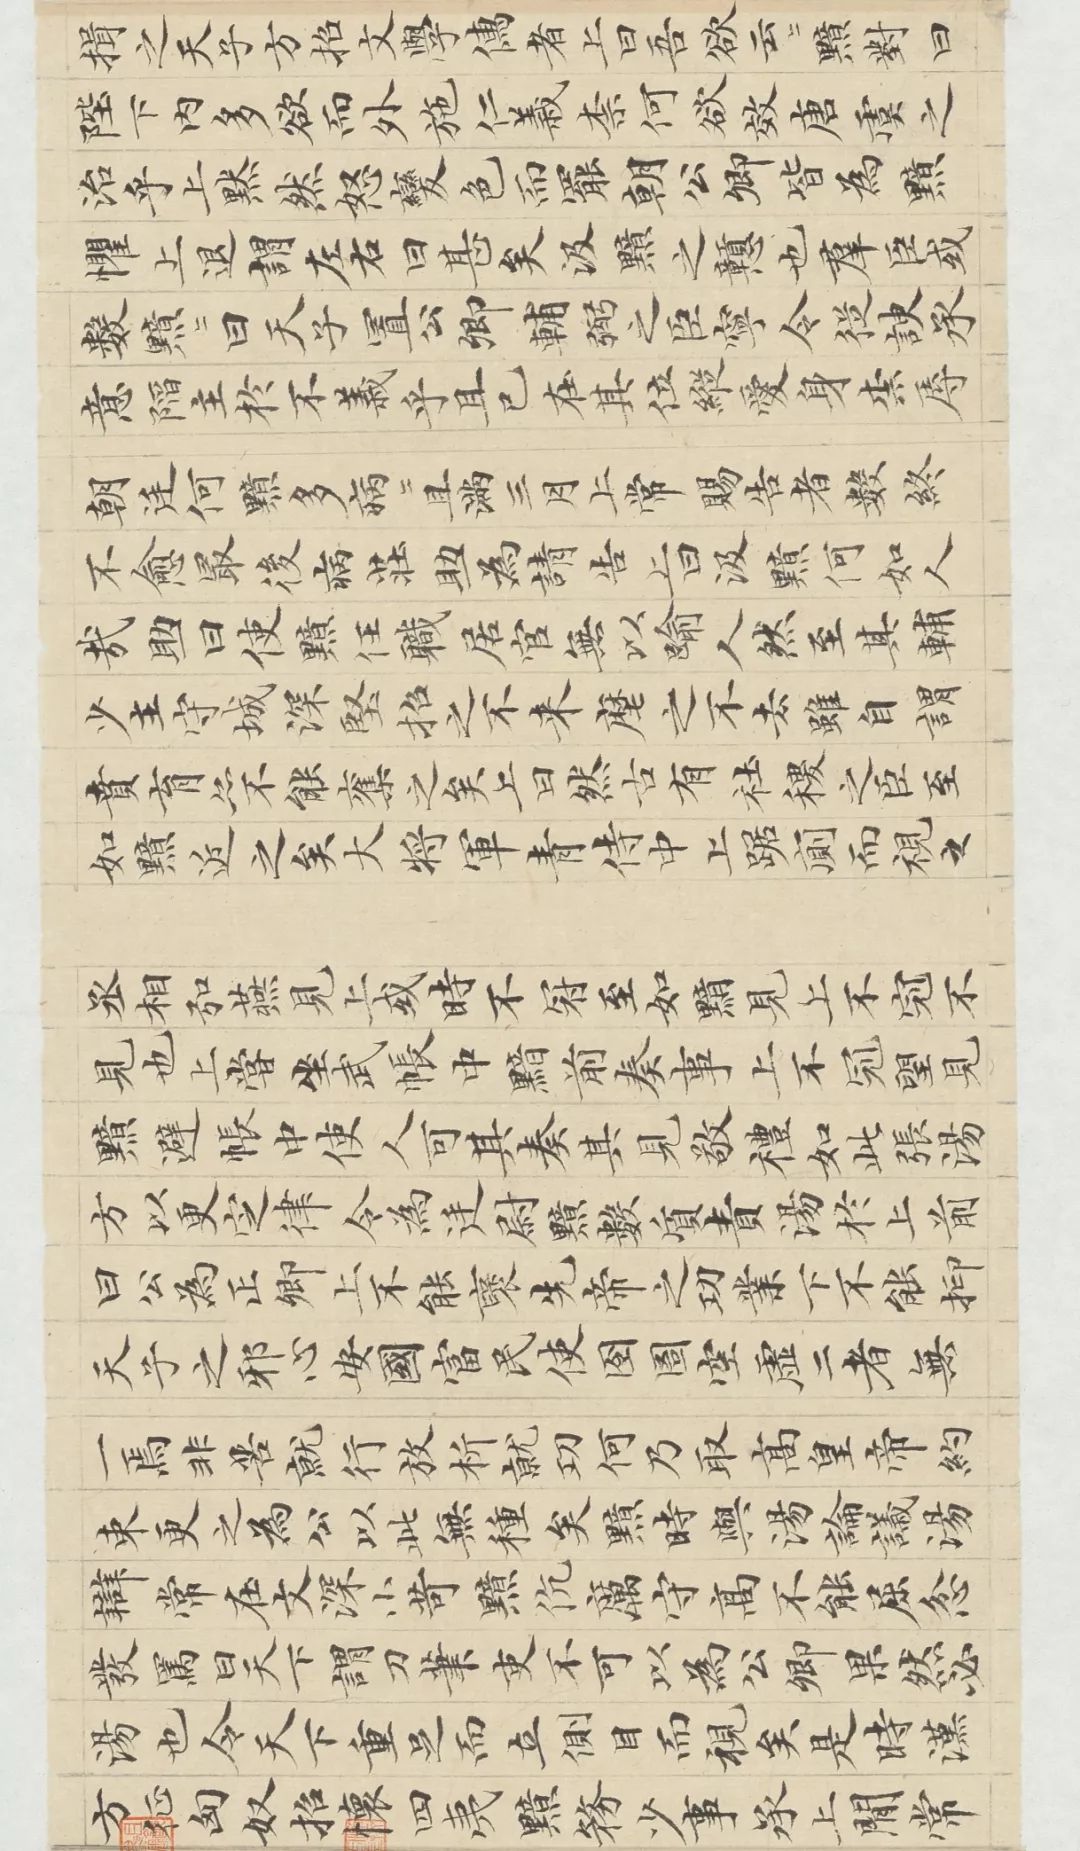 揖之天子方招文學儒者上曰吾欲云〻黯對曰
陛下内多欲而外施仁義柰何欲效唐虞之
治乎上默然怒變色而罷朝公卿皆為黯
懼上退謂左右曰甚矣汲黯之戇也羣臣或
數黯〻曰天子置公卿輔弼之臣寧令從諛承
意陷主於不義乎且已在其位縱愛身柰辱
朝廷何黯多病〻且滿三月上常賜告者數終
不愈最後病莊助為請告上曰汲黯何如人
㦲助曰使黯任職居官無以踰人然至其輔
少主守城深堅招之不来麾之不去雖自謂
賁育亦不能奪之矣上曰然古有社稷之臣至
如黯近之矣大將軍青侍中上踞廁而視之
丞相弘燕見上或時不冠至如黯見上不冠不
見也上嘗坐武帳中黯前奏事上不冠望見
黯避帳中使人可其奏其見敬禮如此張湯
方以更定律令為廷尉黯數質責湯於上前
曰公為正卿上不能襃先帝之功業下不能抑
天子之邪心安國富民使囹圄空虚二者無
一焉非苦就行放析就功何乃取高皇帝約
束更之為公以此無種矣黯時與湯論議湯
辯常在文深小苛黯伉厲守高不能屈忿
發罵曰天下謂刀筆吏不可以為公卿果然必
湯也令天下重足而立側目而視矣是時漢
方征匈奴招懷四夷黯務少事承上閒常